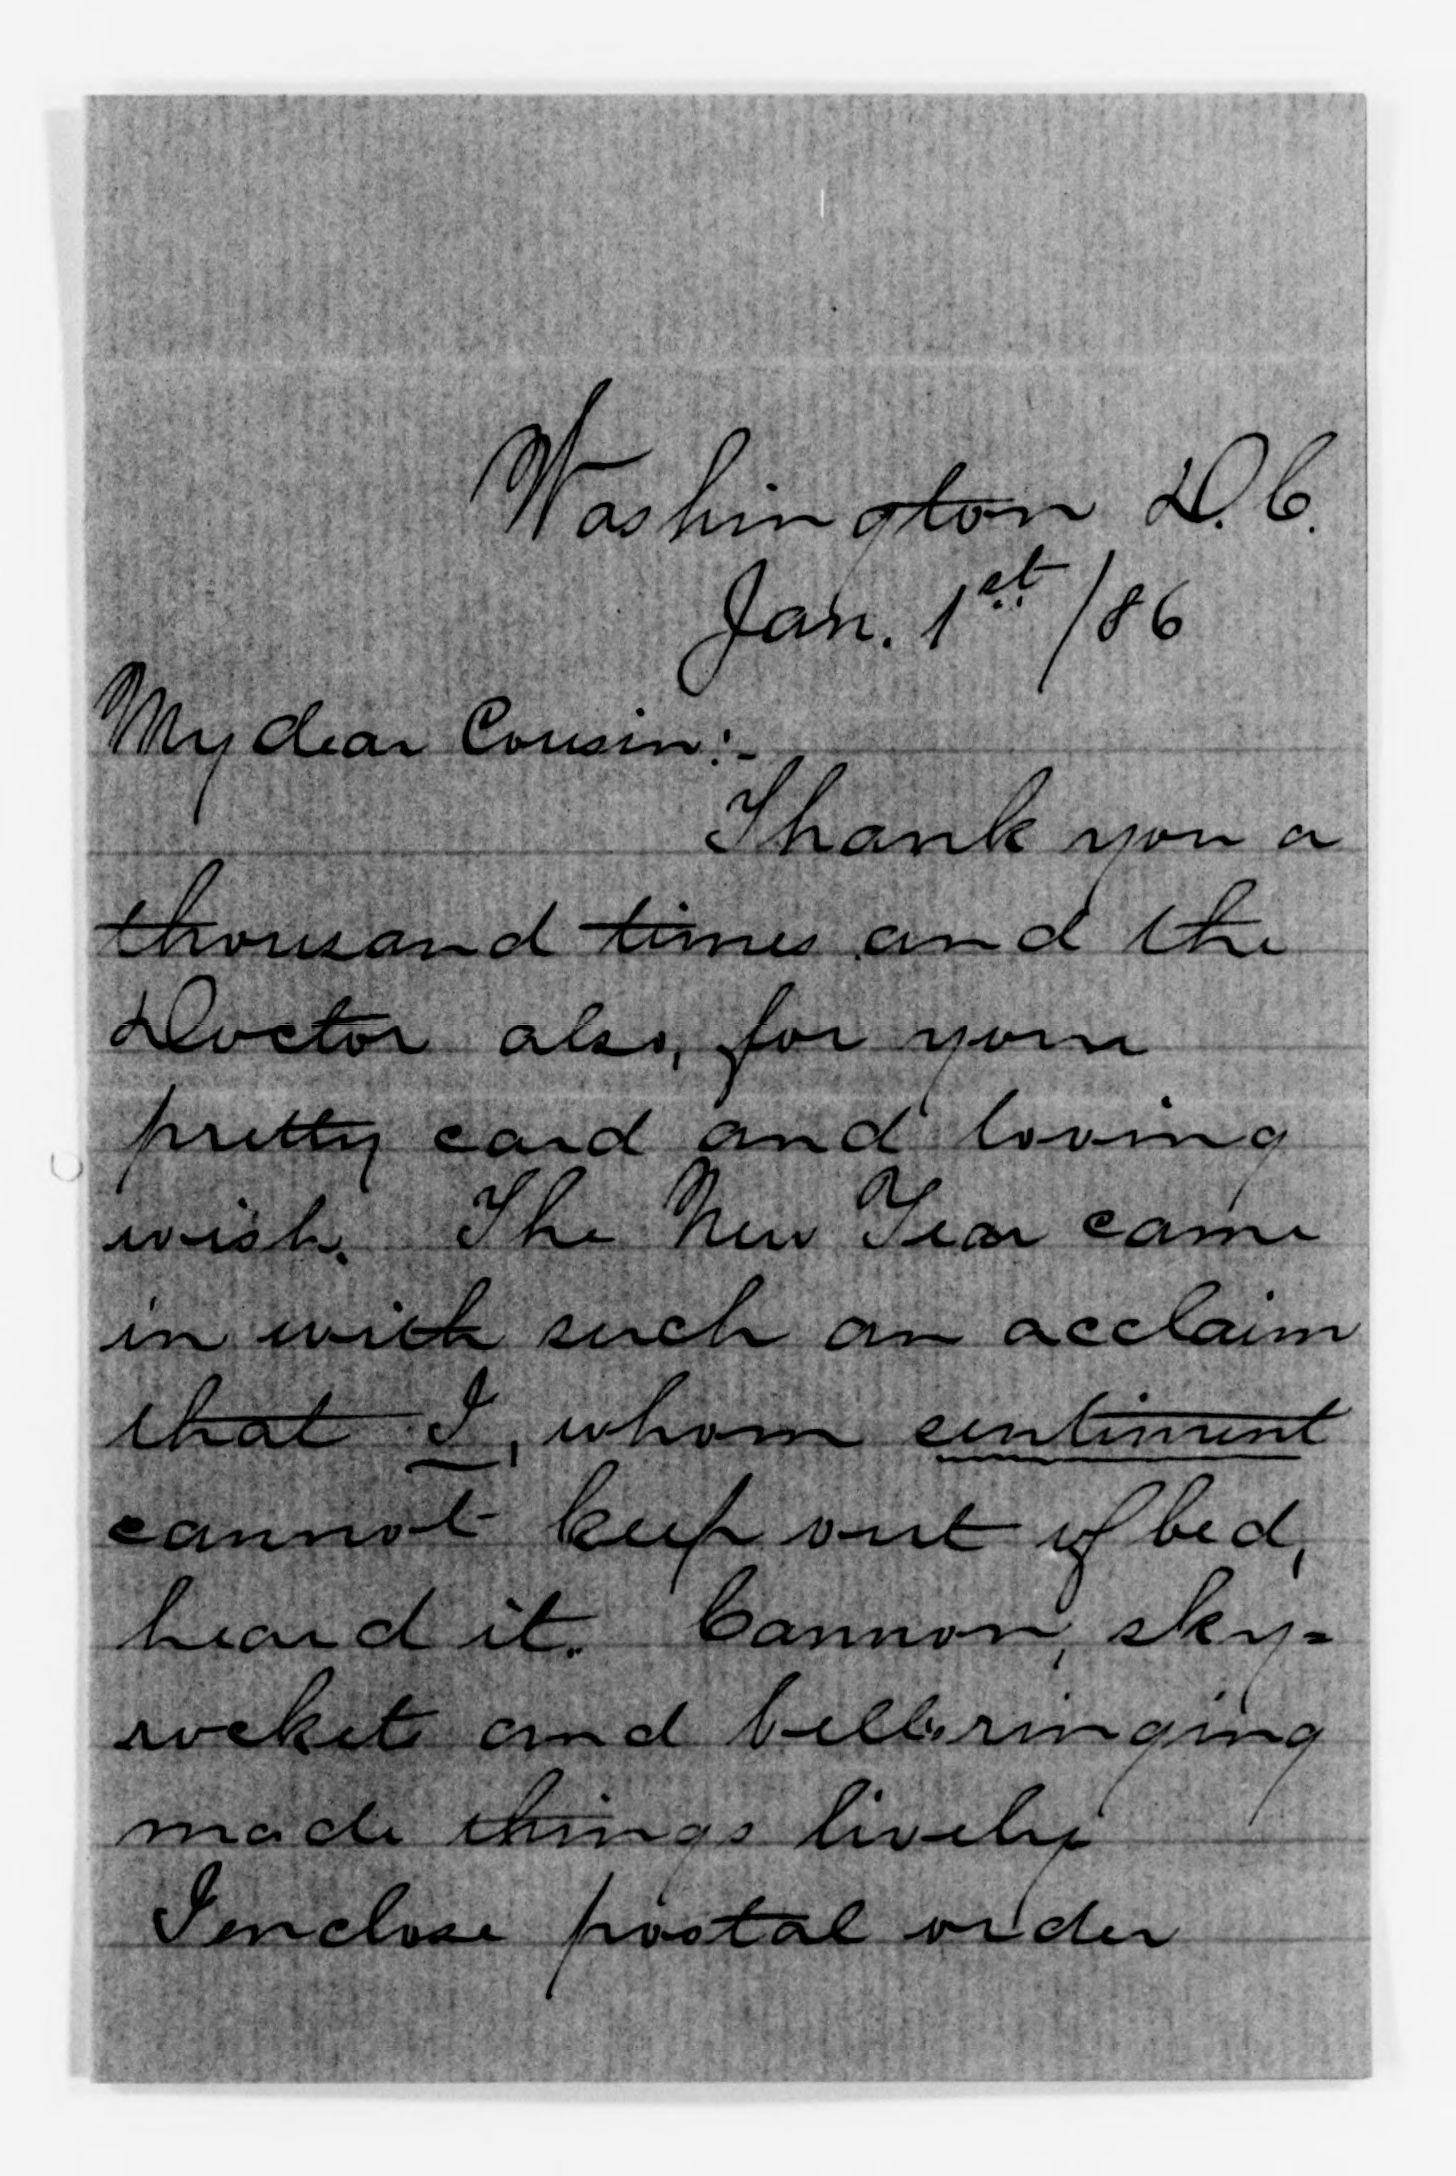 Washington D.C.
Jan. 1st/86
My dear Cousin:-
Thank you a
thousand times and the
Doctor also, for your
pretty card and loving
wish. The New Year came
in with such an acclaim
that I, whom sentiment
cannot keep out of bed,
heard it. Cannon, sky=
rockets and bell-ringing
made things lively
I enclose postal order